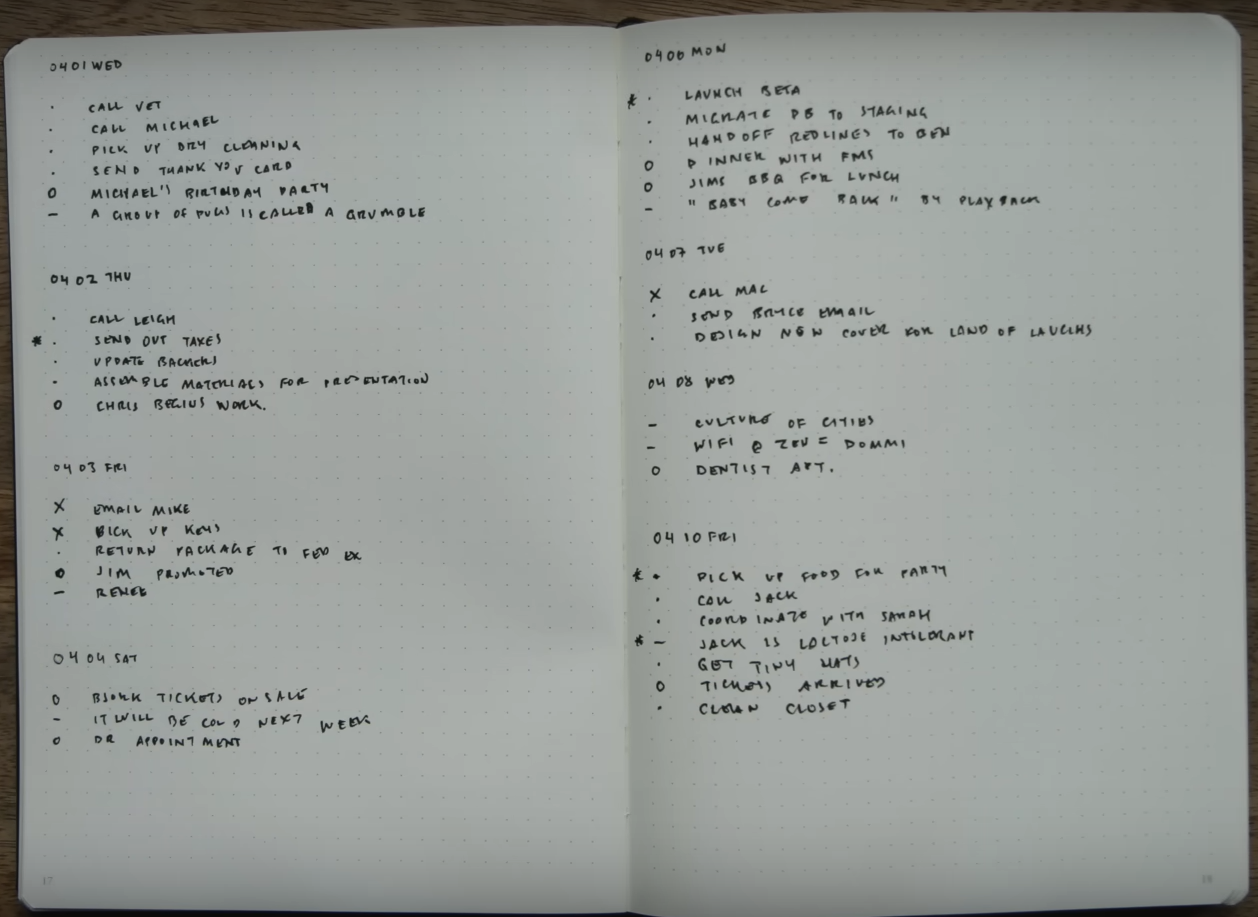 0401 WED
· CALL VET
· CALL MICHAEL
· PICK UP DRY CLEANING
· SEND THANK YOU CARD
O MICHAEL'S BIRTHDAY PARTY
– A GROUP OF PUGS IS CALLED A GRUMBLE
04 02 THU
· CALL LEIGH
* · SEND OUT TAXES
· UPDATE BACKERS
· ASSEMBLE MATERIALS FOR PRESENTATION
O CHRIS BEGINS WORK.
04 03 FRI
X EMAIL MIKE
X PICK UP KEYS
· RETURN PACKAGE TO FED EX
O JIM PROMOTED
– RENEE
04 04 SAT
O BJORK TICKETS ON SALE
– IT WILL BE COLD NEXT WEEK
O DR APPOINTMENT
17
0406 MON
* · LAUNCH BETA
· MIGRATE DB TO STAGING
· HAND OFF REDLINES TO BEN
O DINNER WITH FMS
O JIMS BBQ FOR LUNCH
– "BABY COME BACK" BY PLAYBACK
04 07 TUE
X CALL MAC
· SEND BRYCE EMAIL
· DESIGN NEW COVER FOR LAND OF LAUGHS
04 08 WED
– CULTURE OF CITIES
– WIFI @ ZEU = DOMMI
O DENTIST APT.
04 10 FRI
* · PICK UP FOOD FOR PARTY
· CALL JACK
· COORDINATE WITH SARAH
* – JACK IS LACTOSE INTOLERANT
· GET TINY HATS
O TICKETS ARRIVED
· CLEAN CLOSET
18